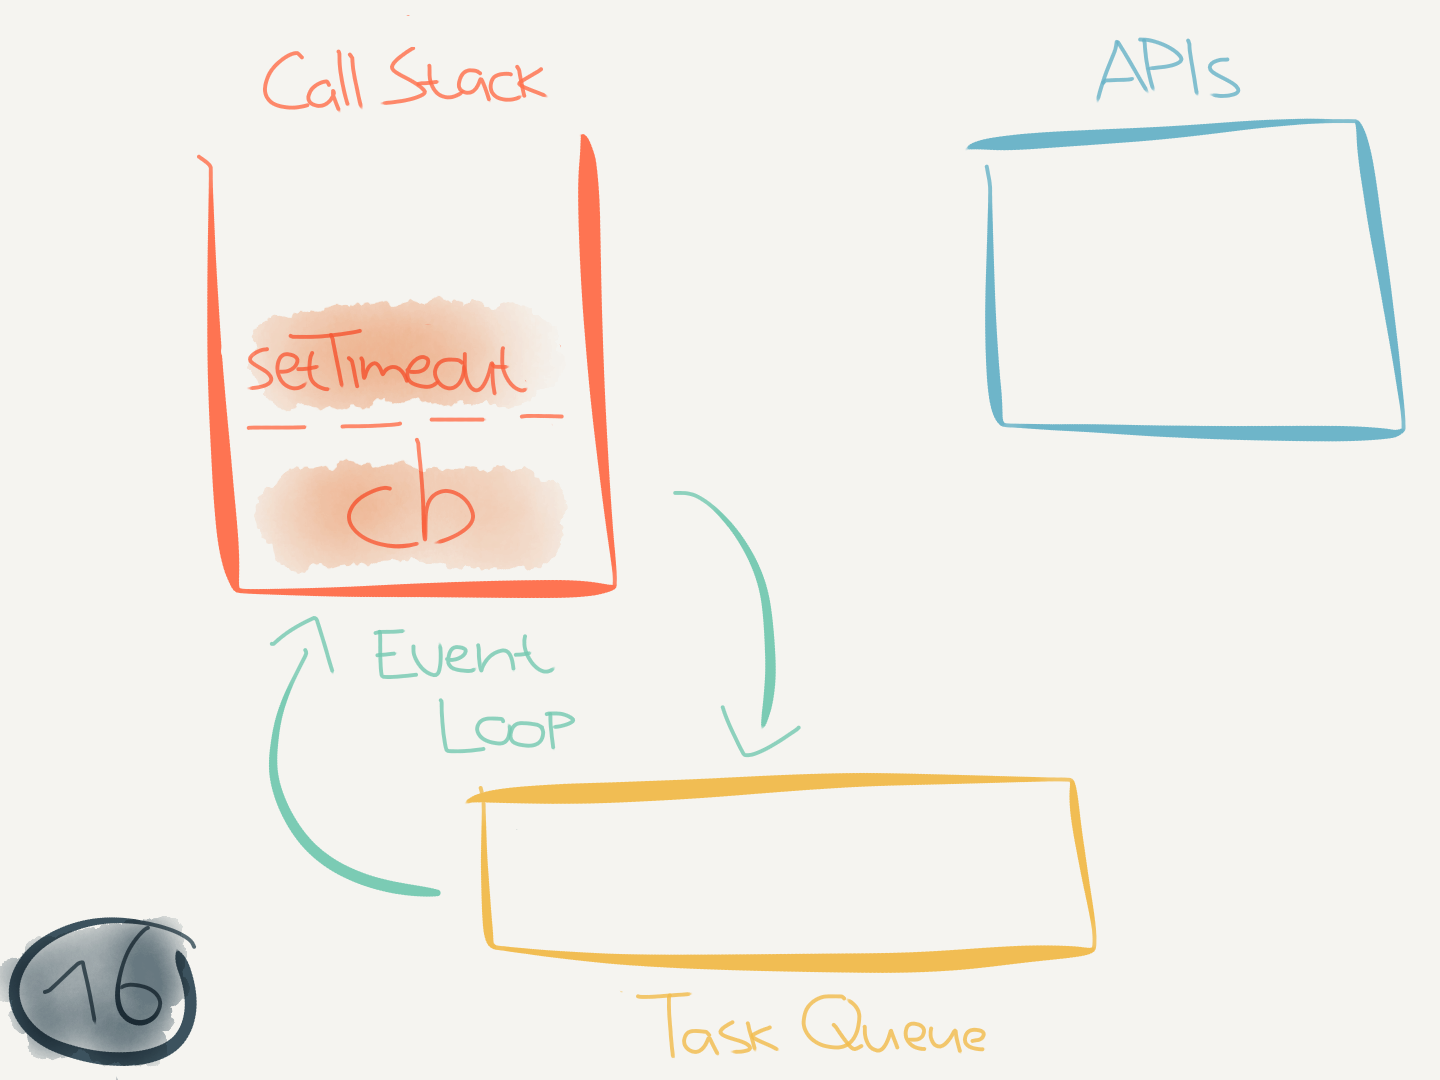 Call Stack
APIs
setTimeout
cb
Event
Loop
Task Queue
16